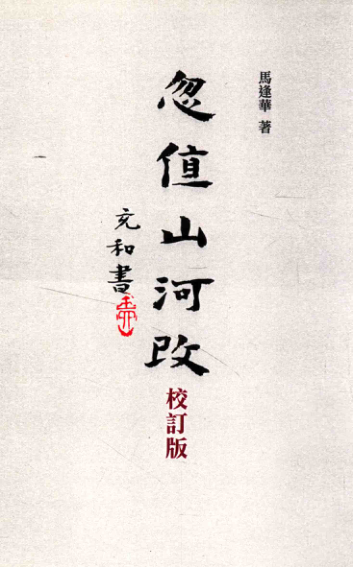 馬逢華 著
忽值山河改
校訂版
充和書